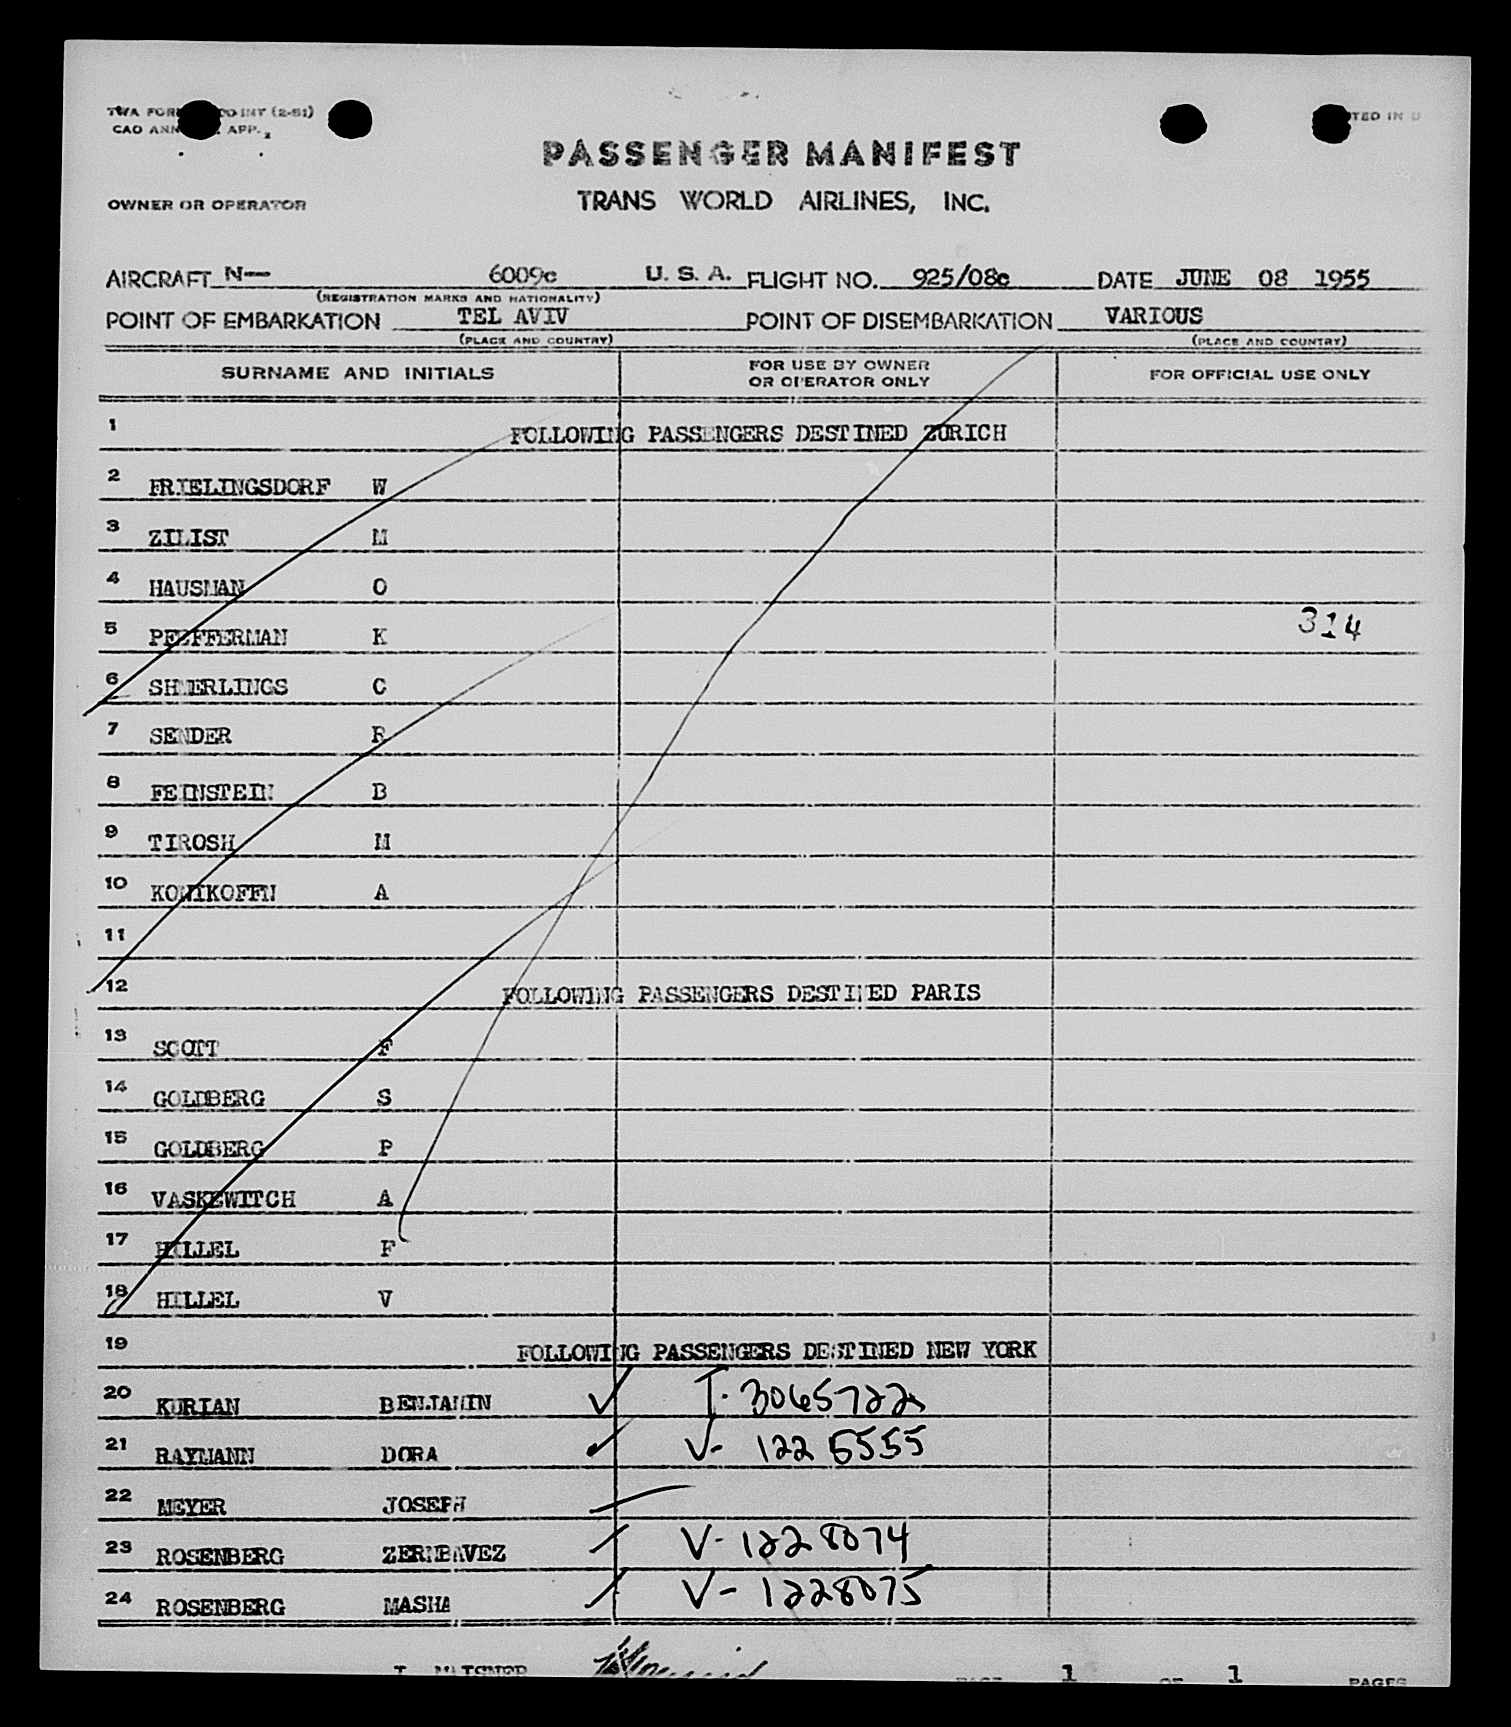 TWA FORM
CAO ANN APP.
TED IN U
PASSENGER MANIFEST
OWNER OR OPERATOR
TRANS WORLD AIRLINES, INC.
AIRCRAFT N— 6009c U. S. A. FLIGHT NO. 925/08c DATE JUNE 08 1955
(REGISTRATION MARKS AND NATIONALITY)
POINT OF EMBARKATION TEL AVIV POINT OF DISEMBARKATION VARIOUS
(PLACE AND COUNTRY) (PLACE AND COUNTRY)
SURNAME AND INITIALS FOR USE BY OWNER OR OPERATOR ONLY FOR OFFICIAL USE ONLY
1 FOLLOWING PASSENGERS DESTINED ZURICH
2 FRIELINGSDORF W
3 ZILIST M
4 HAUSMAN O
5 PFEFFERMAN K
314
6 SHMERLINGS C
7 SENDER R
8 FEINSTEIN B
9 TIROSH M
10 KOMIKOFFN A
11
12 FOLLOWING PASSENGERS DESTINED PARIS
13 SCOTT F
14 GOLDBERG S
15 GOLDBERG P
16 VASKEWITCH A
17 HILLEL F
18 HILLEL V
19 FOLLOWING PASSENGERS DESTINED NEW YORK
20 KURIAN BENJAMIN ✓ I-3065722
21 RAYMANN DORA ✓ V- 1226555
22 MEYER JOSEPH
23 ROSENBERG ZERNBAVEZ V-1228074
24 ROSENBERG MASHA V-1228075
I MAISNER PAGE 1 OF 1 PAGES